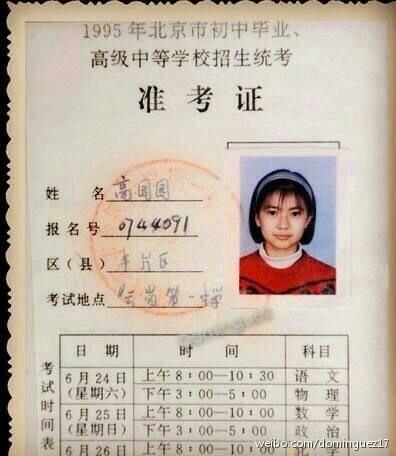 1995年北京市初中毕业、
高级中等学校招生统考
准考证
姓 名 高圆圆
报名号 0744091
区（县） 丰台区
考试地点 云岗第一中学
考试时间表
日 期 时 间 科目
6月24日 上午8:00—10:30 语文
（星期六） 下午3:00—5:00 物理
6月25日 上午8:00—10:00 数学
（星期日） 下午3:00—5:00 政治
6月26日 上午8:00—10
weibo.com/dominguez17